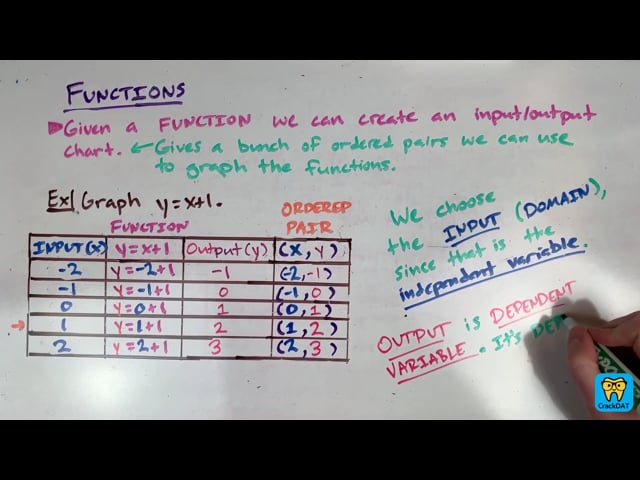 FUNCTIONS
Given a FUNCTION we can create an input/output
chart. ← Gives a bunch of ordered pairs we can use
to graph the functions.
Ex| Graph y=x+1.
FUNCTION
ORDERED
PAIR
INPUT(x) y=x+1 Output(y) (x,y)
-2 y=-2+1 -1 (-2,-1)
-1 y=-1+1 0 (-1,0)
0 y=0+1 1 (0,1)
→ 1 y=1+1 2 (1,2)
2 y=2+1 3 (2,3)
We choose
the INPUT (DOMAIN),
since that is the
independent variable.
OUTPUT is DEPENDENT
VARIABLE. It's DEP
CrackDAT